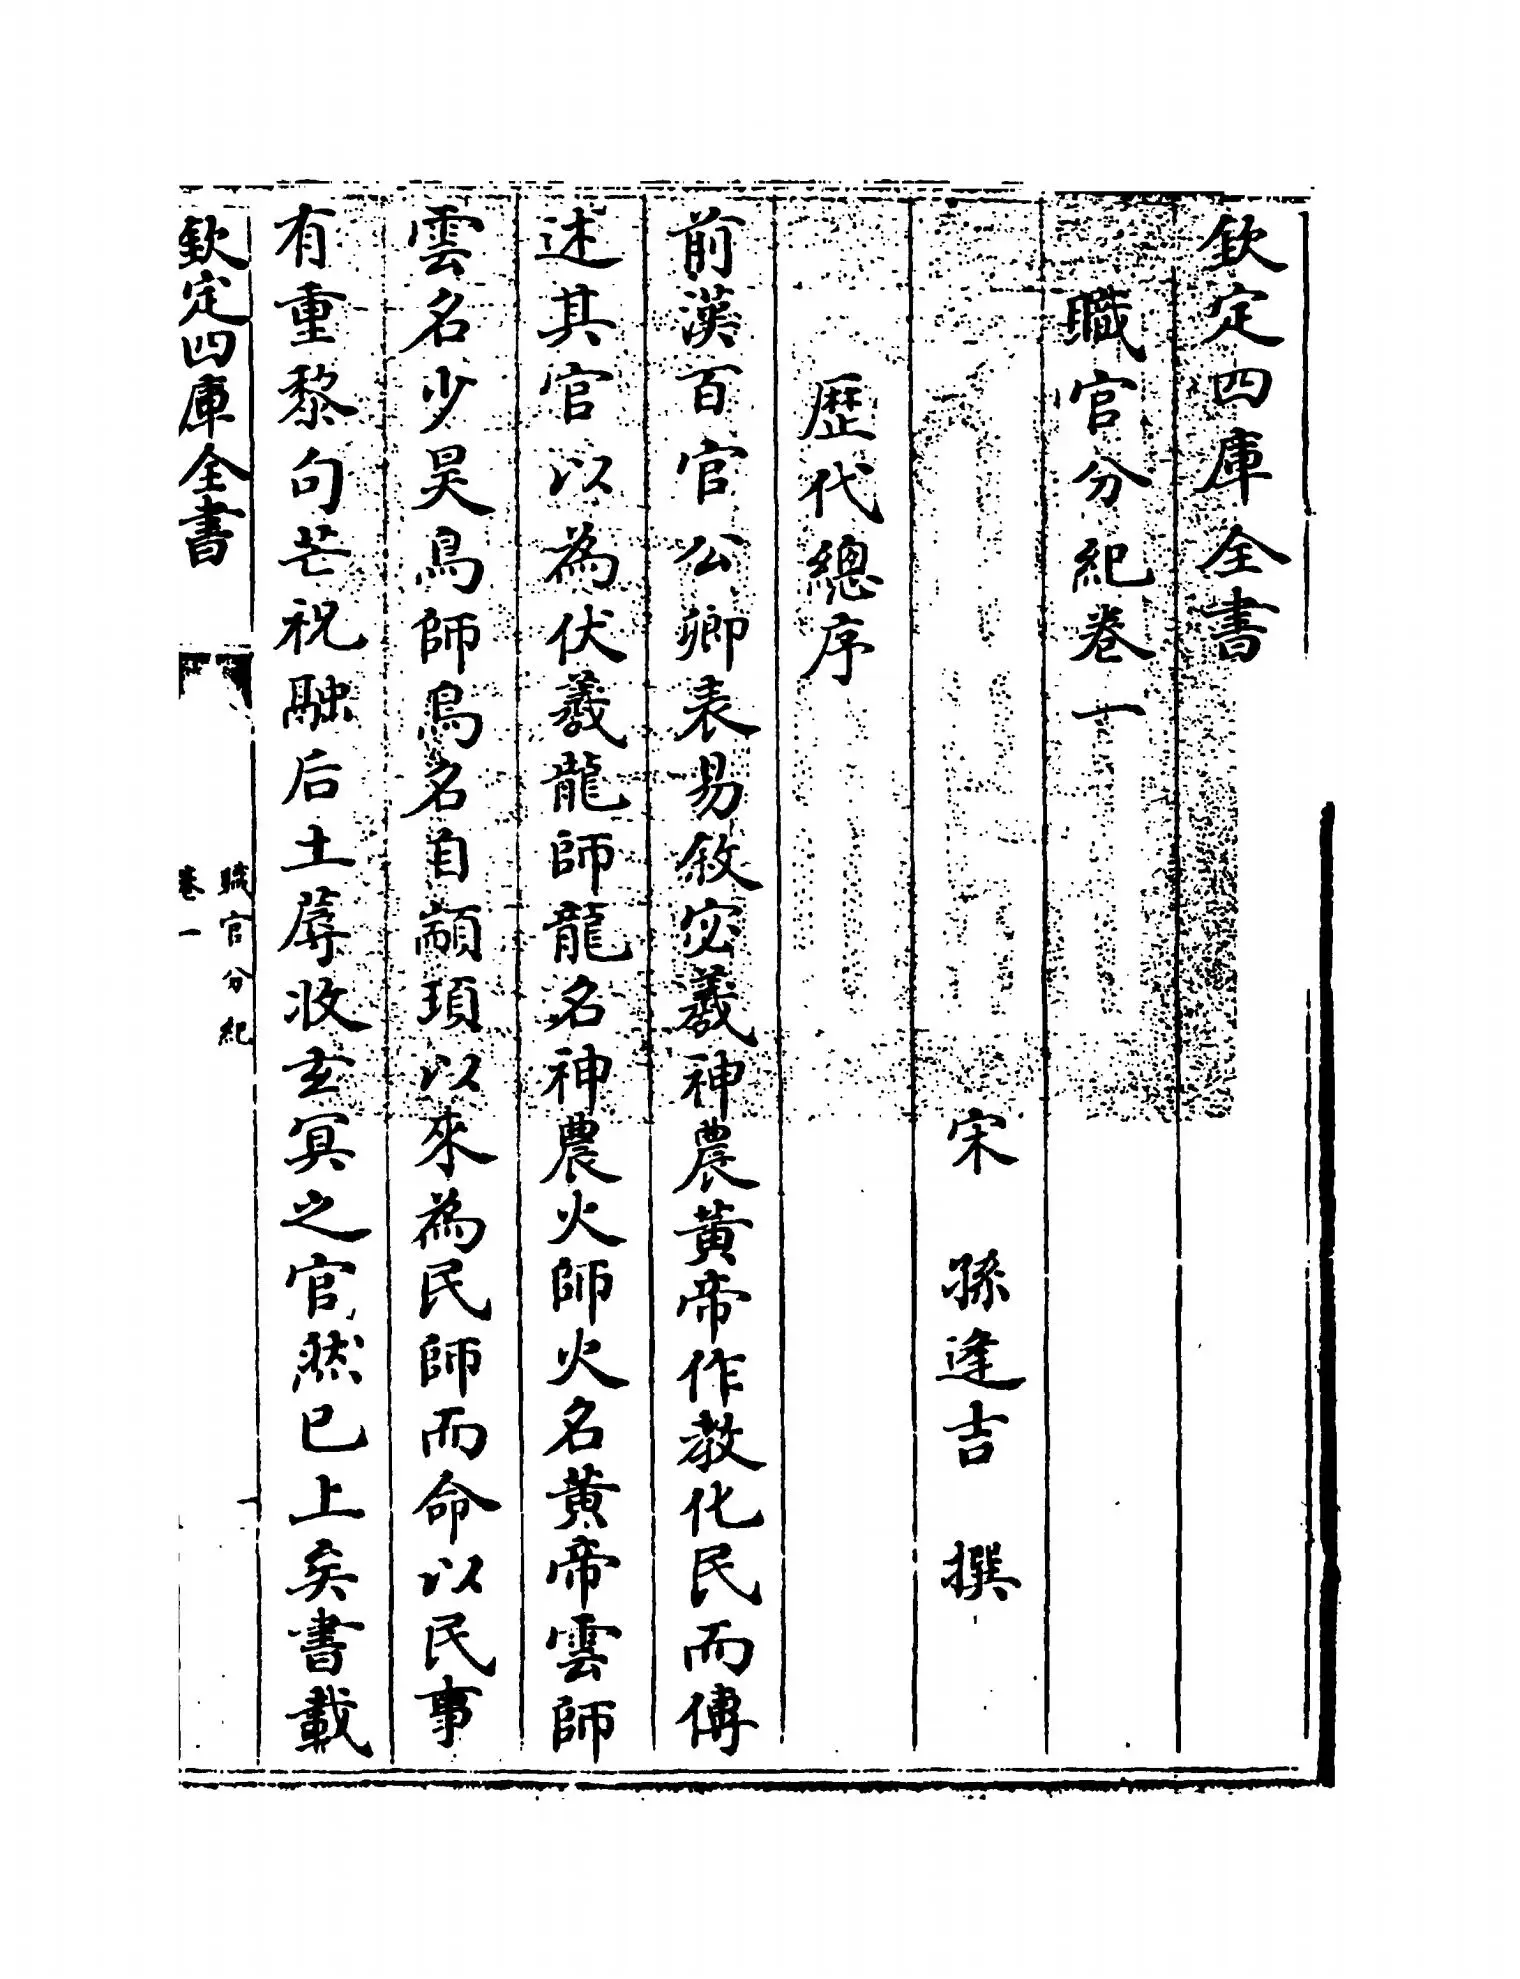 欽定四庫全書
職官分紀卷一
宋　孫逢吉　撰
歴代總序
前漢百官公卿表易敘宓羲神農黃帝作教化民而傳
述其官以為伏羲龍師龍名神農火師火名黃帝雲師
雲名少昊鳥師鳥名自顓頊以來為民師而命以民事
有重黎句芒祝融后土蓐收玄冥之官然已上矣書載
欽定四庫全書
職官分紀
卷一